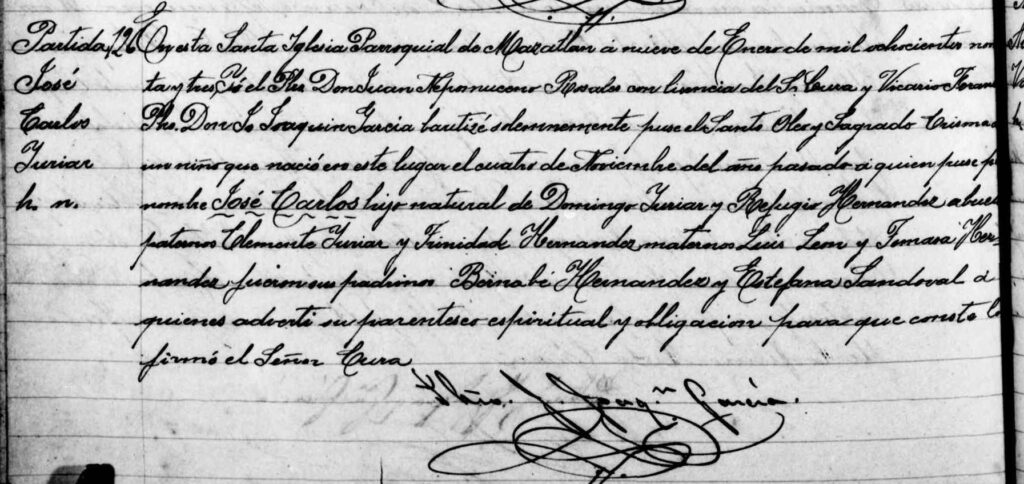 Partida 126
José
Carlos
Yuriar
h. n.
En esta Santa Iglesia Parroquial de Mazatlán á nueve de Enero de mil ochocientos noven
ta y tres, Yó el Pbro. Don Juan Nepomuceno Rosales con licencia del Sr. Cura y Vicario Foraneo
Pbo. Don J. Joaquin Garcia bautizé solemnemente puse el Santo Oleo y Sagrado Crisma á
un niño que nació en este lugar el cuatro de Noviembre del año pasado á quien puse por
nombre José Carlos hijo natural de Domingo Yuriar y Refugio Hernandez abuelos
paternos Clemente Yuriar y Trinidad Hernandez maternos Luis Leon y Tomasa Her-
nandez fueron sus padrinos Bernabé Hernandez y Estefana Sandoval á
quienes advertí su parentesco espiritual y obligacion para que conste lo
firmó el Señor Cura
J. Joaqn. Garcia.